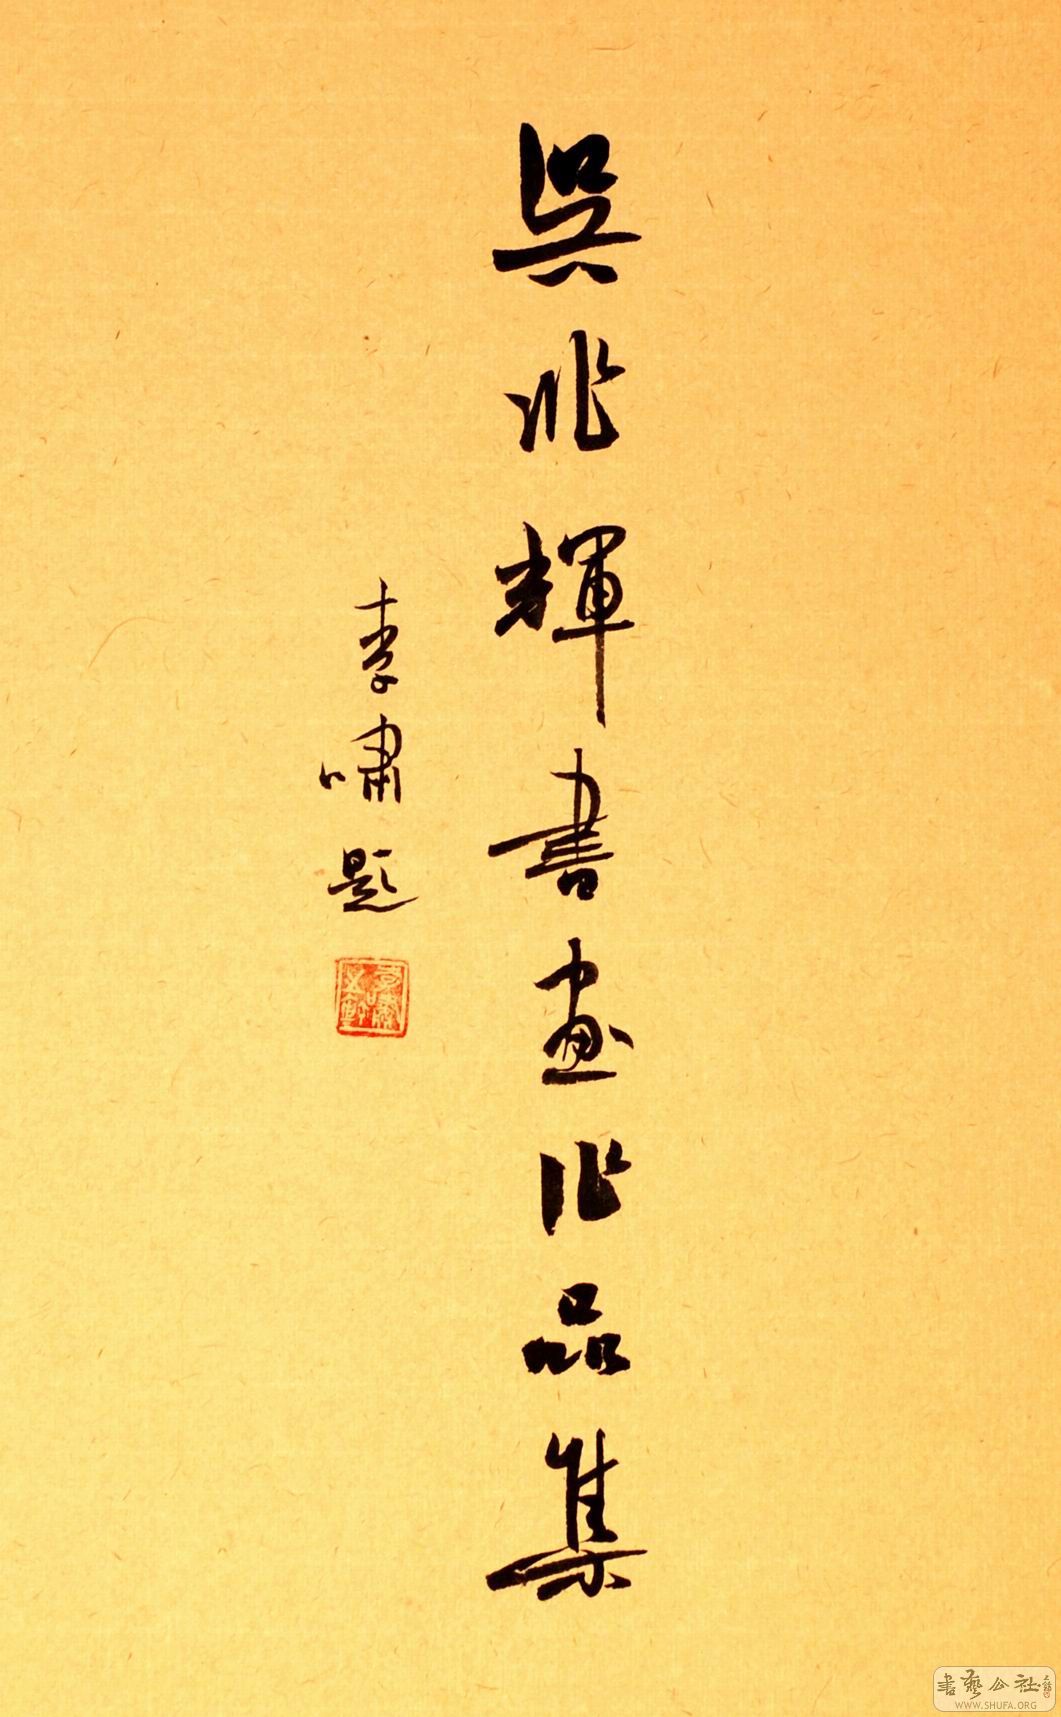 吳兆輝書畫作品集
李嘯題
書藝公社
WWW.SHUFA.ORG